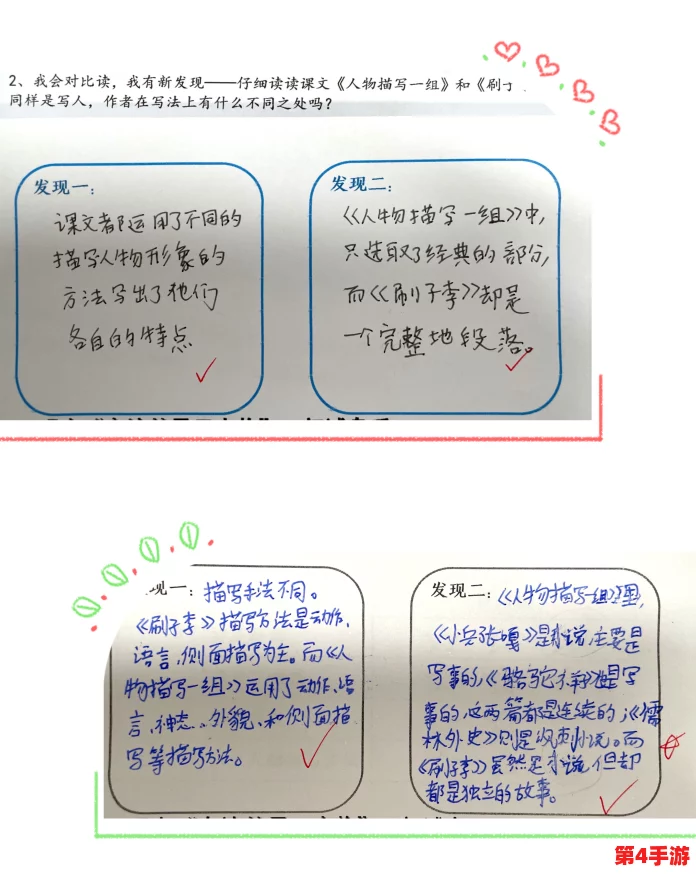 2、我会对比读，我有新发现——仔细读读课文《人物描写一组》和《刷子
同样是写人，作者在写法上有什么不同之处吗？
发现一：
课文都运用了不同的
描写人物形象的
方法写出了他们
各自的特点
发现二：
《人物描写一组》中，
只选取了经典的部分，
而《刷子李》却是
一个完整地段落。
现一：描写手法不同。
《刷子李》描写方法是动作、
语言、侧面描写为主。而《人
物描写一组》运用了动作、语
言、神态、外貌、和侧面描
写等描写方法。
发现二：《人物描写一组》里，
《小兵张嘎》是小说，主要是
写事的，《骆驼祥子》也是写
事的，这两篇都是连续的，《儒
林外史》则是讽刺小说。而
《刷子李》虽然是小说，但却
都是独立的故事。
第4手游